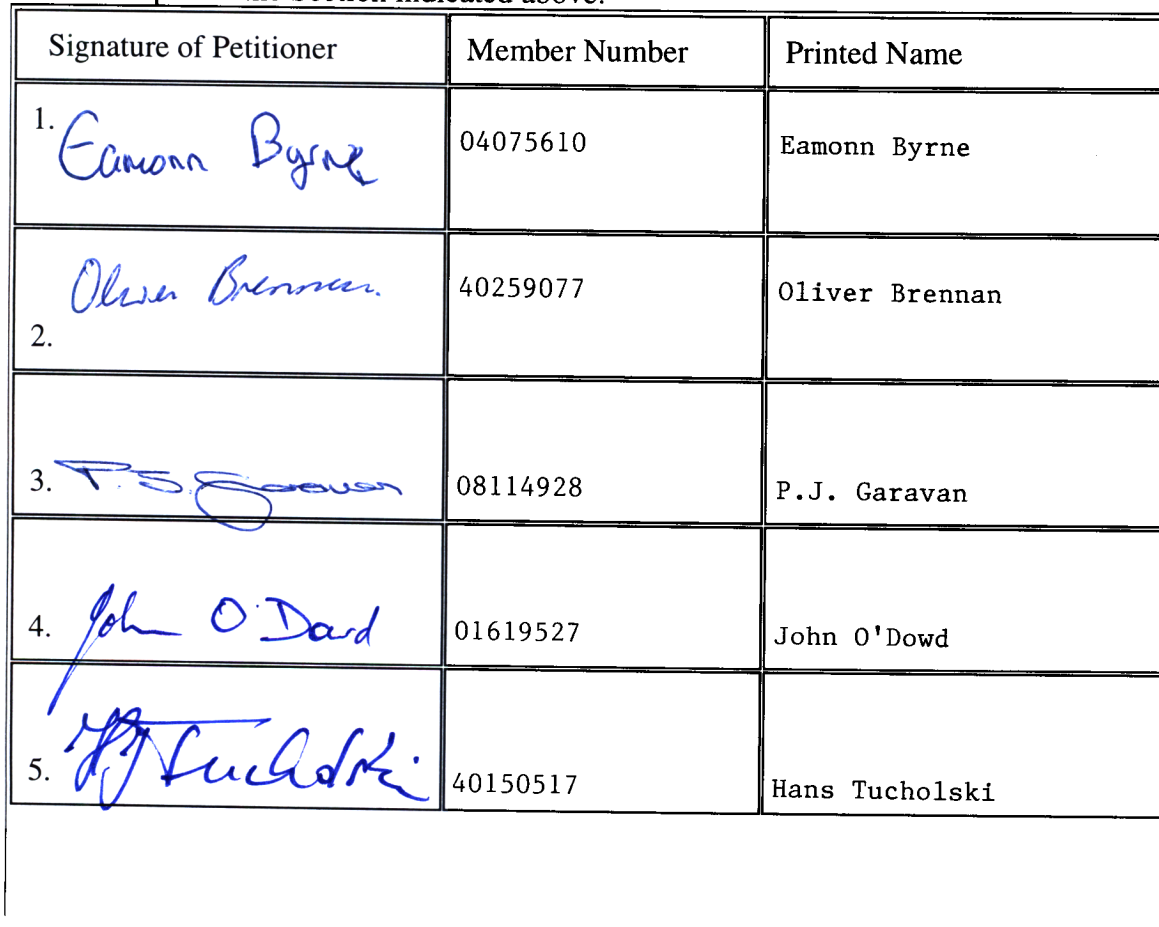 the Section indicated above.
Signature of Petitioner Member Number Printed Name
1. Eamonn Byrne 04075610 Eamonn Byrne
2. Oliver Brennan 40259077 Oliver Brennan
3. P.J. Garavan 08114928 P.J. Garavan
4. John O'Dowd 01619527 John O'Dowd
5. HJ Tucholski 40150517 Hans Tucholski